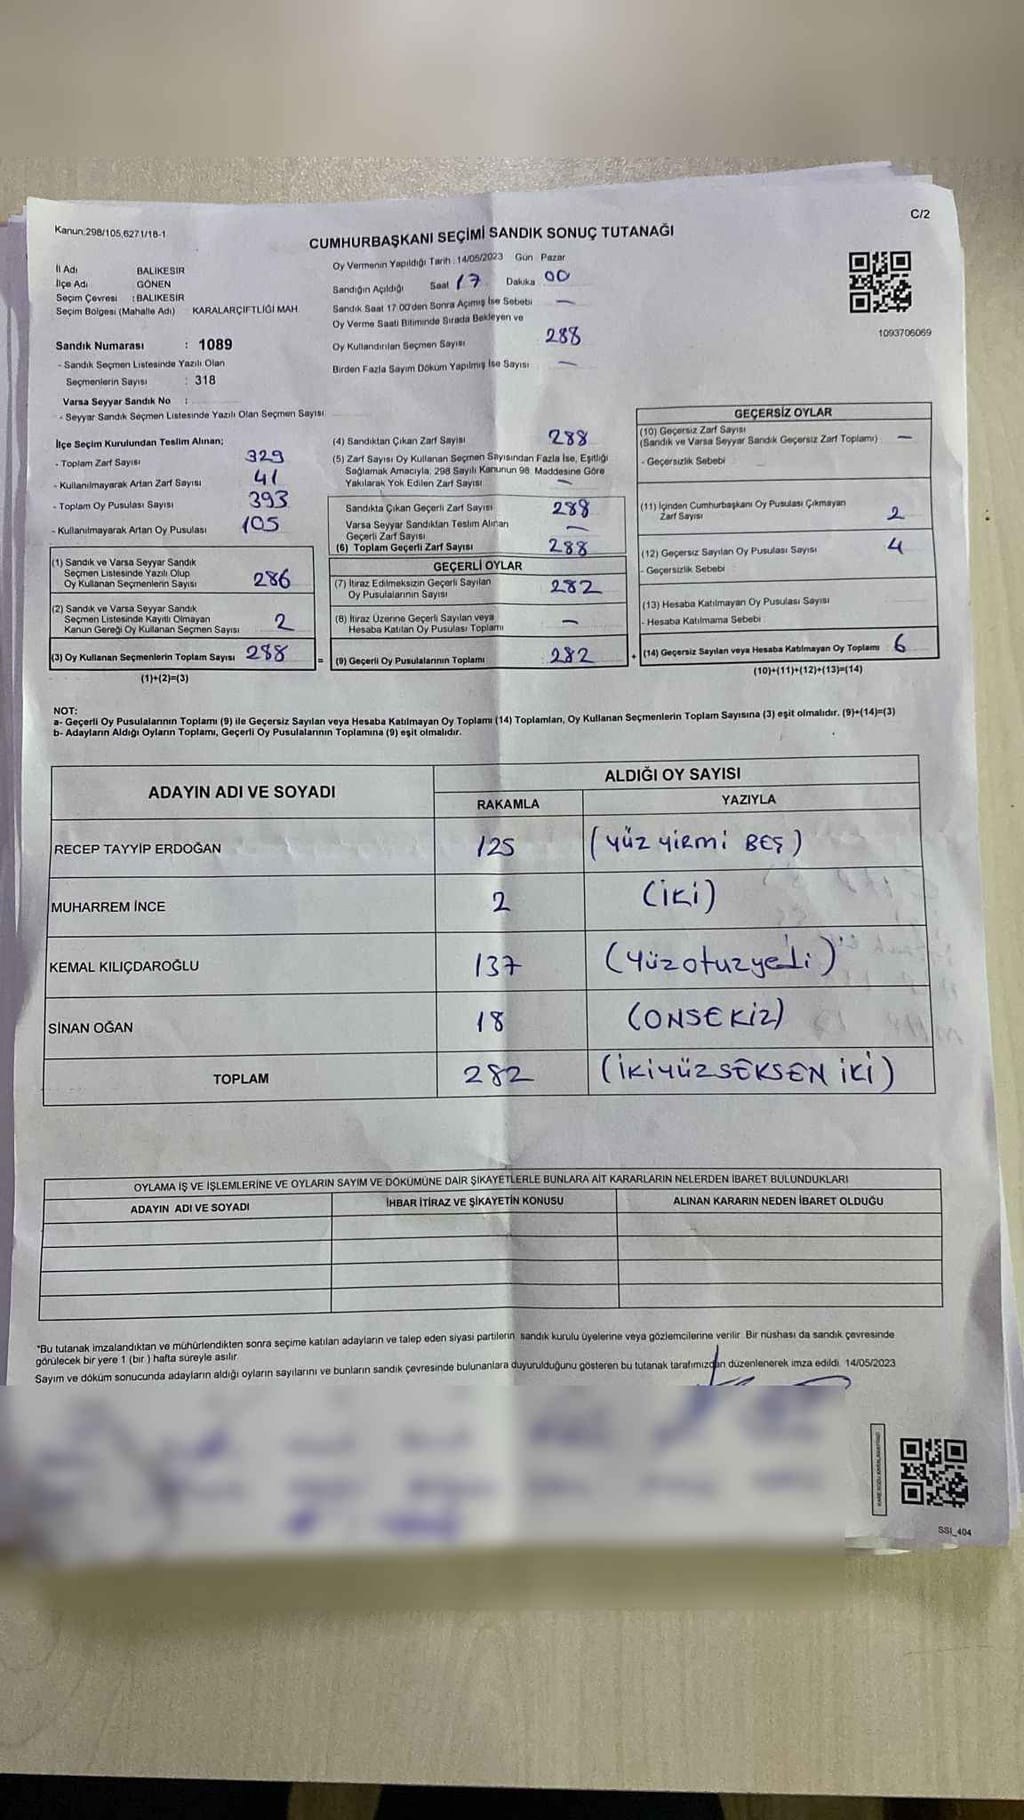 Kanun;298/105,6271/18-1
C/2
CUMHURBAŞKANI SEÇİMİ SANDIK SONUÇ TUTANAĞI
İl Adı BALIKESİR
İlçe Adı GÖNEN
Seçim Çevresi : BALIKESİR
Seçim Bölgesi (Mahalle Adı) KARALARÇİFTLİĞİ MAH
Oy Vermenin Yapıldığı Tarih : 14/05/2023 Gün Pazar
Sandığın Açıldığı Saat 17 Dakika 00
Sandık Saat 17:00'den Sonra Açımış İse Sebebi —
Oy Verme Saati Bitiminde Sırada Bekleyen ve
Oy Kullandırılan Seçmen Sayısı 288
Birden Fazla Sayım Döküm Yapılmış İse Sayısı —
1093706069
Sandık Numarası : 1089
- Sandık Seçmen Listesinde Yazılı Olan
Seçmenlerin Sayısı : 318
Varsa Seyyar Sandık No :
- Seyyar Sandık Seçmen Listesinde Yazılı Olan Seçmen Sayısı
İlçe Seçim Kurulundan Teslim Alınan;
- Toplam Zarf Sayısı 329
- Kullanılmayarak Artan Zarf Sayısı 41
- Toplam Oy Pusulası Sayısı 393
- Kullanılmayarak Artan Oy Pusulası 105
(1) Sandık ve Varsa Seyyar Sandık
Seçmen Listesinde Yazılı Olup
Oy Kullanan Seçmenlerin Sayısı 286
(2) Sandık ve Varsa Seyyar Sandık
Seçmen Listesinde Kayıtlı Olmayan
Kanun Gereği Oy Kullanan Seçmen Sayısı 2
(3) Oy Kullanan Seçmenlerin Toplam Sayısı 288
(1)+(2)=(3)
(4) Sandıktan Çıkan Zarf Sayısı 288
(5) Zarf Sayısı Oy Kullanan Seçmen Sayısından Fazla İse, Eşitliği
Sağlamak Amacıyla; 298 Sayılı Kanunun 98. Maddesine Göre
Yakılarak Yok Edilen Zarf Sayısı —
Sandıkta Çıkan Geçerli Zarf Sayısı 288
Varsa Seyyar Sandıktan Teslim Alınan
Geçerli Zarf Sayısı —
(6) Toplam Geçerli Zarf Sayısı 288
GEÇERLİ OYLAR
(7) İtiraz Edilmeksizin Geçerli Sayılan
Oy Pusulalarının Sayısı 282
(8) İtiraz Üzerine Geçerli Sayılan veya
Hesaba Katılan Oy Pusulası Toplamı —
= (9) Geçerli Oy Pusulalarının Toplamı 282
GEÇERSİZ OYLAR
(10) Geçersiz Zarf Sayısı
(Sandık ve Varsa Seyyar Sandık Geçersiz Zarf Toplamı) —
- Geçersizlik Sebebi
(11) İçinden Cumhurbaşkanı Oy Pusulası Çıkmayan
Zarf Sayısı 2
(12) Geçersiz Sayılan Oy Pusulası Sayısı 4
- Geçersizlik Sebebi
(13) Hesaba Katılmayan Oy Pusulası Sayısı
- Hesaba Katılmama Sebebi
+ (14) Geçersiz Sayılan veya Hesaba Katılmayan Oy Toplamı 6
(10)+(11)+(12)+(13)=(14)
NOT:
a- Geçerli Oy Pusulalarının Toplamı (9) ile Geçersiz Sayılan veya Hesaba Katılmayan Oy Toplamı (14) Toplamları, Oy Kullanan Seçmenlerin Toplam Sayısına (3) eşit olmalıdır. (9)+(14)=(3)
b- Adayların Aldığı Oyların Toplamı, Geçerli Oy Pusulalarının Toplamına (9) eşit olmalıdır.
ADAYIN ADI VE SOYADI ALDIĞI OY SAYISI
RAKAMLA YAZIYLA
RECEP TAYYİP ERDOĞAN 125 (YÜZ YİRMİ BEŞ)
MUHARREM İNCE 2 (İKİ)
KEMAL KILIÇDAROĞLU 137 (Yüzotuzyedi)
SİNAN OĞAN 18 (ONSEKİZ)
TOPLAM 282 (İKİYÜZSEKSEN İKİ)
OYLAMA İŞ VE İŞLEMLERİNE VE OYLARIN SAYIM VE DÖKÜMÜNE DAİR ŞİKAYETLERLE BUNLARA AİT KARARLARIN NELERDEN İBARET BULUNDUKLARI
ADAYIN ADI VE SOYADI İHBAR İTİRAZ VE ŞİKAYETİN KONUSU ALINAN KARARIN NEDEN İBARET OLDUĞU
*Bu tutanak imzalandıktan ve mühürlendikten sonra seçime katılan adayların ve talep eden siyasi partilerin sandık kurulu üyelerine veya gözlemcilerine verilir. Bir nüshası da sandık çevresinde
görülecek bir yere 1 (bir ) hafta süreyle asılır.
Sayım ve döküm sonucunda adayların aldığı oyların sayılarını ve bunların sandık çevresinde bulunanlara duyurulduğunu gösteren bu tutanak tarafımızdan düzenlenerek imza edildi. 14/05/2023
SSI_404